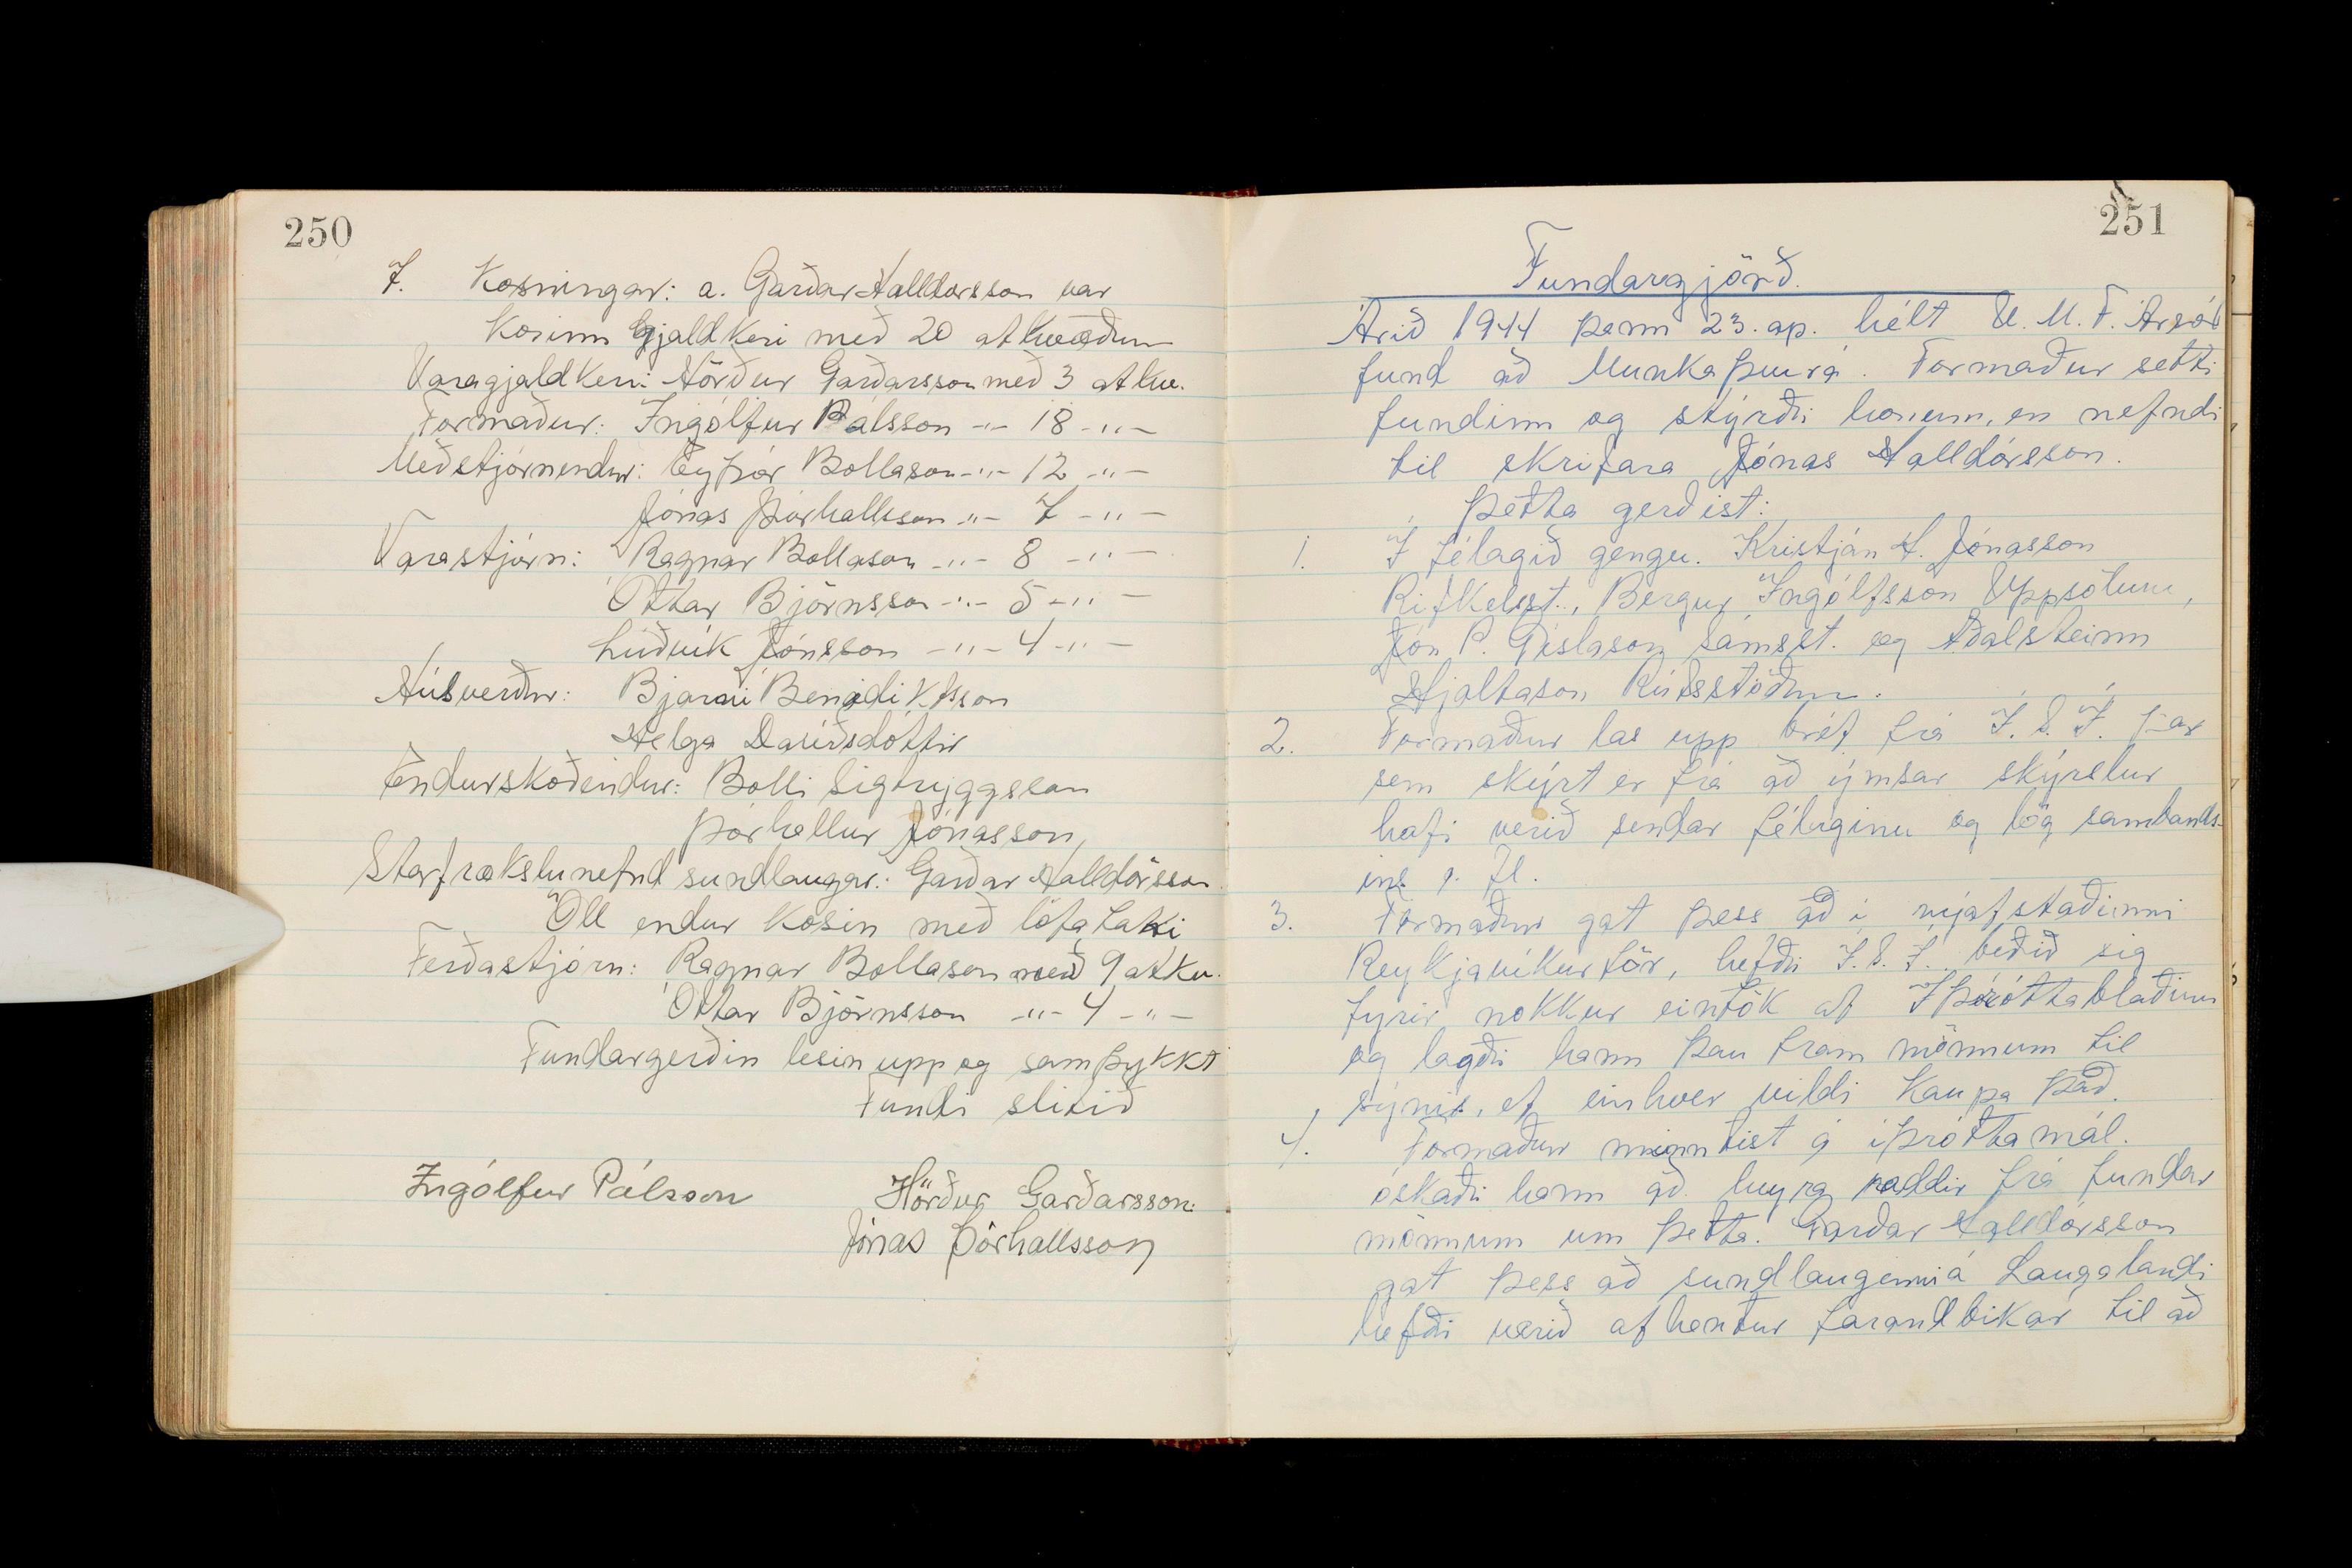 250
7. Kosningar: a. Garðar Halldórsson var
kosinn Gjaldkeri með 20 atkvæðum
Varagjaldkeri: Hörður Garðarsson með 3 atkv.
Formaður: Ingólfur Pálsson -"- 18 -"-
Meðstjórnendur: Eyþór Bollason -"- 12 -"-
Jónas Þórhallsson -"- 7 -"-
Varastjórn: Ragnar Bollason -"- 8 -"-
Óttar Björnsson -"- 5 -"-
Lúðvík Jónsson -"- 4 -"-
Húsverðir: Bjarni Benidiktsson
Helga Davíðsdóttir
Endurskoðendur: Bolli Sigtryggsson
Þórhallur Jónasson,
Starfrækslunefnd sundlaugar: Garðar Halldórsson
Öll endur kosin með lófataki
Ferðastjórn: Ragnar Bollason með 9 atkv.
Óttar Björnsson -"- 4 -"-
Fundargerðin lesin upp og samþykkt
Fundi slitið
Ingólfur Pálsson Hörður Garðarsson.
Jónas Þórhallsson
251
Fundargjörð.
Árið 1944 þann 23. ap. hélt U. M. F. Ársól
fund að Munkaþverá. Formaður setti
fundinn og stýrði honum, en nefndi
til skrifara Jónas Halldórsson.
Þetta gerðist:
1. Í félagið gengu. Kristján H. Jónasson
Rifkelsst., Bergur Ingólfsson Uppsölum,
Jón P. Gíslason Sámsst. og Aðalsteinn
Hjaltason Rútsstöðum.
2. Formaður las upp bréf frá Í. S. Í. þar
sem skýrt er frá að ýmsar skýrslur
hafi verið sendar félaginu og lög sambands-
ins o. fl.
3. Formaður gat þess að í nýafstaðinni
Reykjavíkurför, hefði Í. S. Í. beðið sig
fyrir nokkur eintök af Íþróttablaðinu
og lagði hann þau fram mönnum til
sýnis, ef einhver vildi kaupa það.
4. Formaður minntist á íþróttamál.
óskaði hann að heyra raddir frá fundar
mönnum um þetta. Garðar Halldórsson
gat þess að sundlauginni á Laugalandi
hefði verið afhentur farandbikar til að